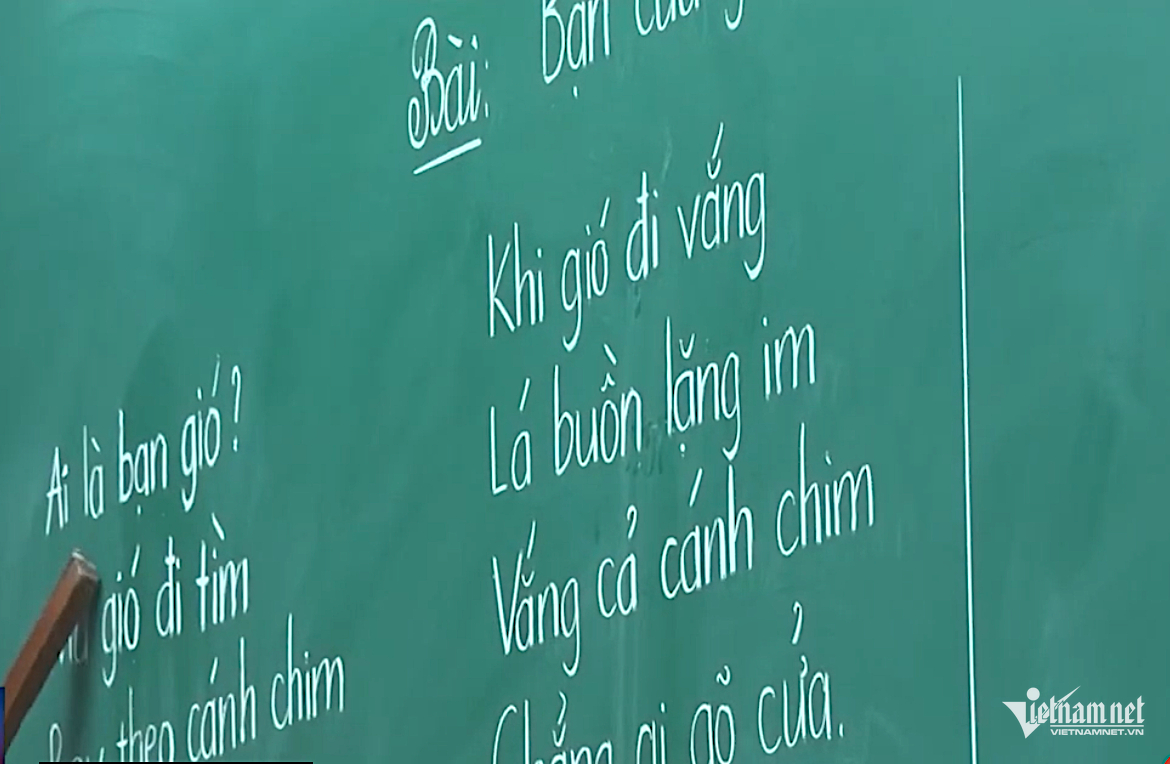 Bài: Bạn của
Ai là bạn gió?
gió đi tìm
theo cánh chim
Khi gió đi vắng
Lá buồn lặng im
Vắng cả cánh chim
Chẳng ai gõ cửa.
Vietnamnet
VIETNAMNET.VN